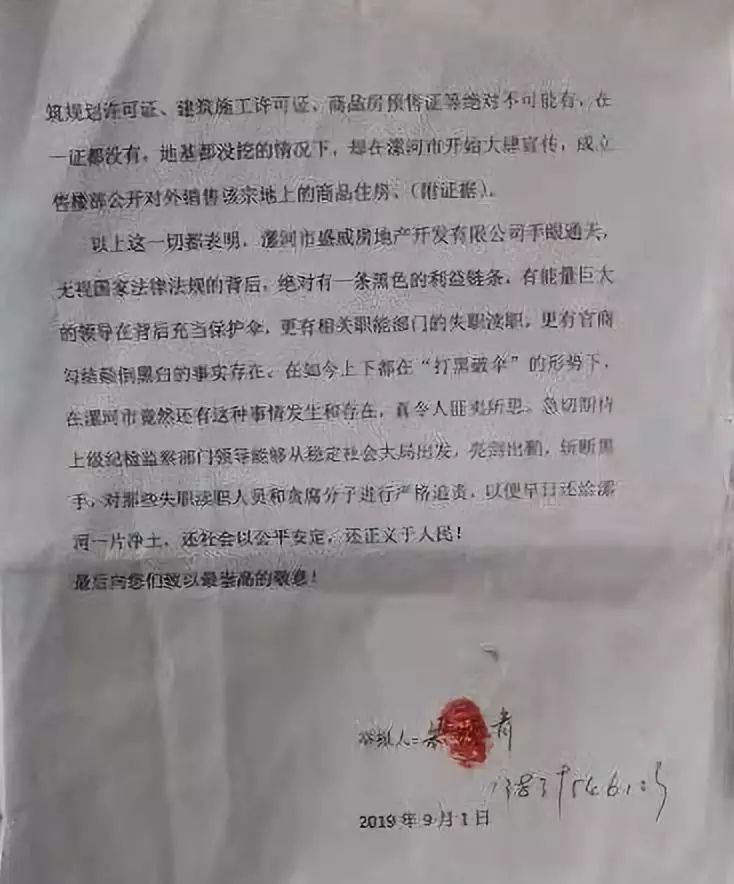 筑规划许可证、建筑施工许可证、商品房预售证等绝对不可能有，在
一证都没有，地基都没挖的情况下，却在漯河市开始大肆宣传，成立
售楼部公开对外销售该宗地上的商品住房、（附证据）。
以上这一切都表明，漯河市盛威房地产开发有限公司手眼通天，
无视国家法律法规的背后，绝对有一条黑色的利益链条，有能量巨大
的领导在背后充当保护伞，更有相关职能部门的失职渎职，更有官商
勾结颠倒黑白的事实存在。在如今上下都在“打黑破伞”的形势下，
在漯河市竟然还有这种事情发生和存在，真令人匪夷所思。急切期待
上级纪检监察部门领导能够从稳定社会大局出发，亮剑出鞘，斩断黑
手，对那些失职渎职人员和贪腐分子进行严格追责，以便早日还给漯
河一片净土，还社会以公平安定，还正义于人民！
最后向您们致以最崇高的敬意！
举报人：
2019年9月1日